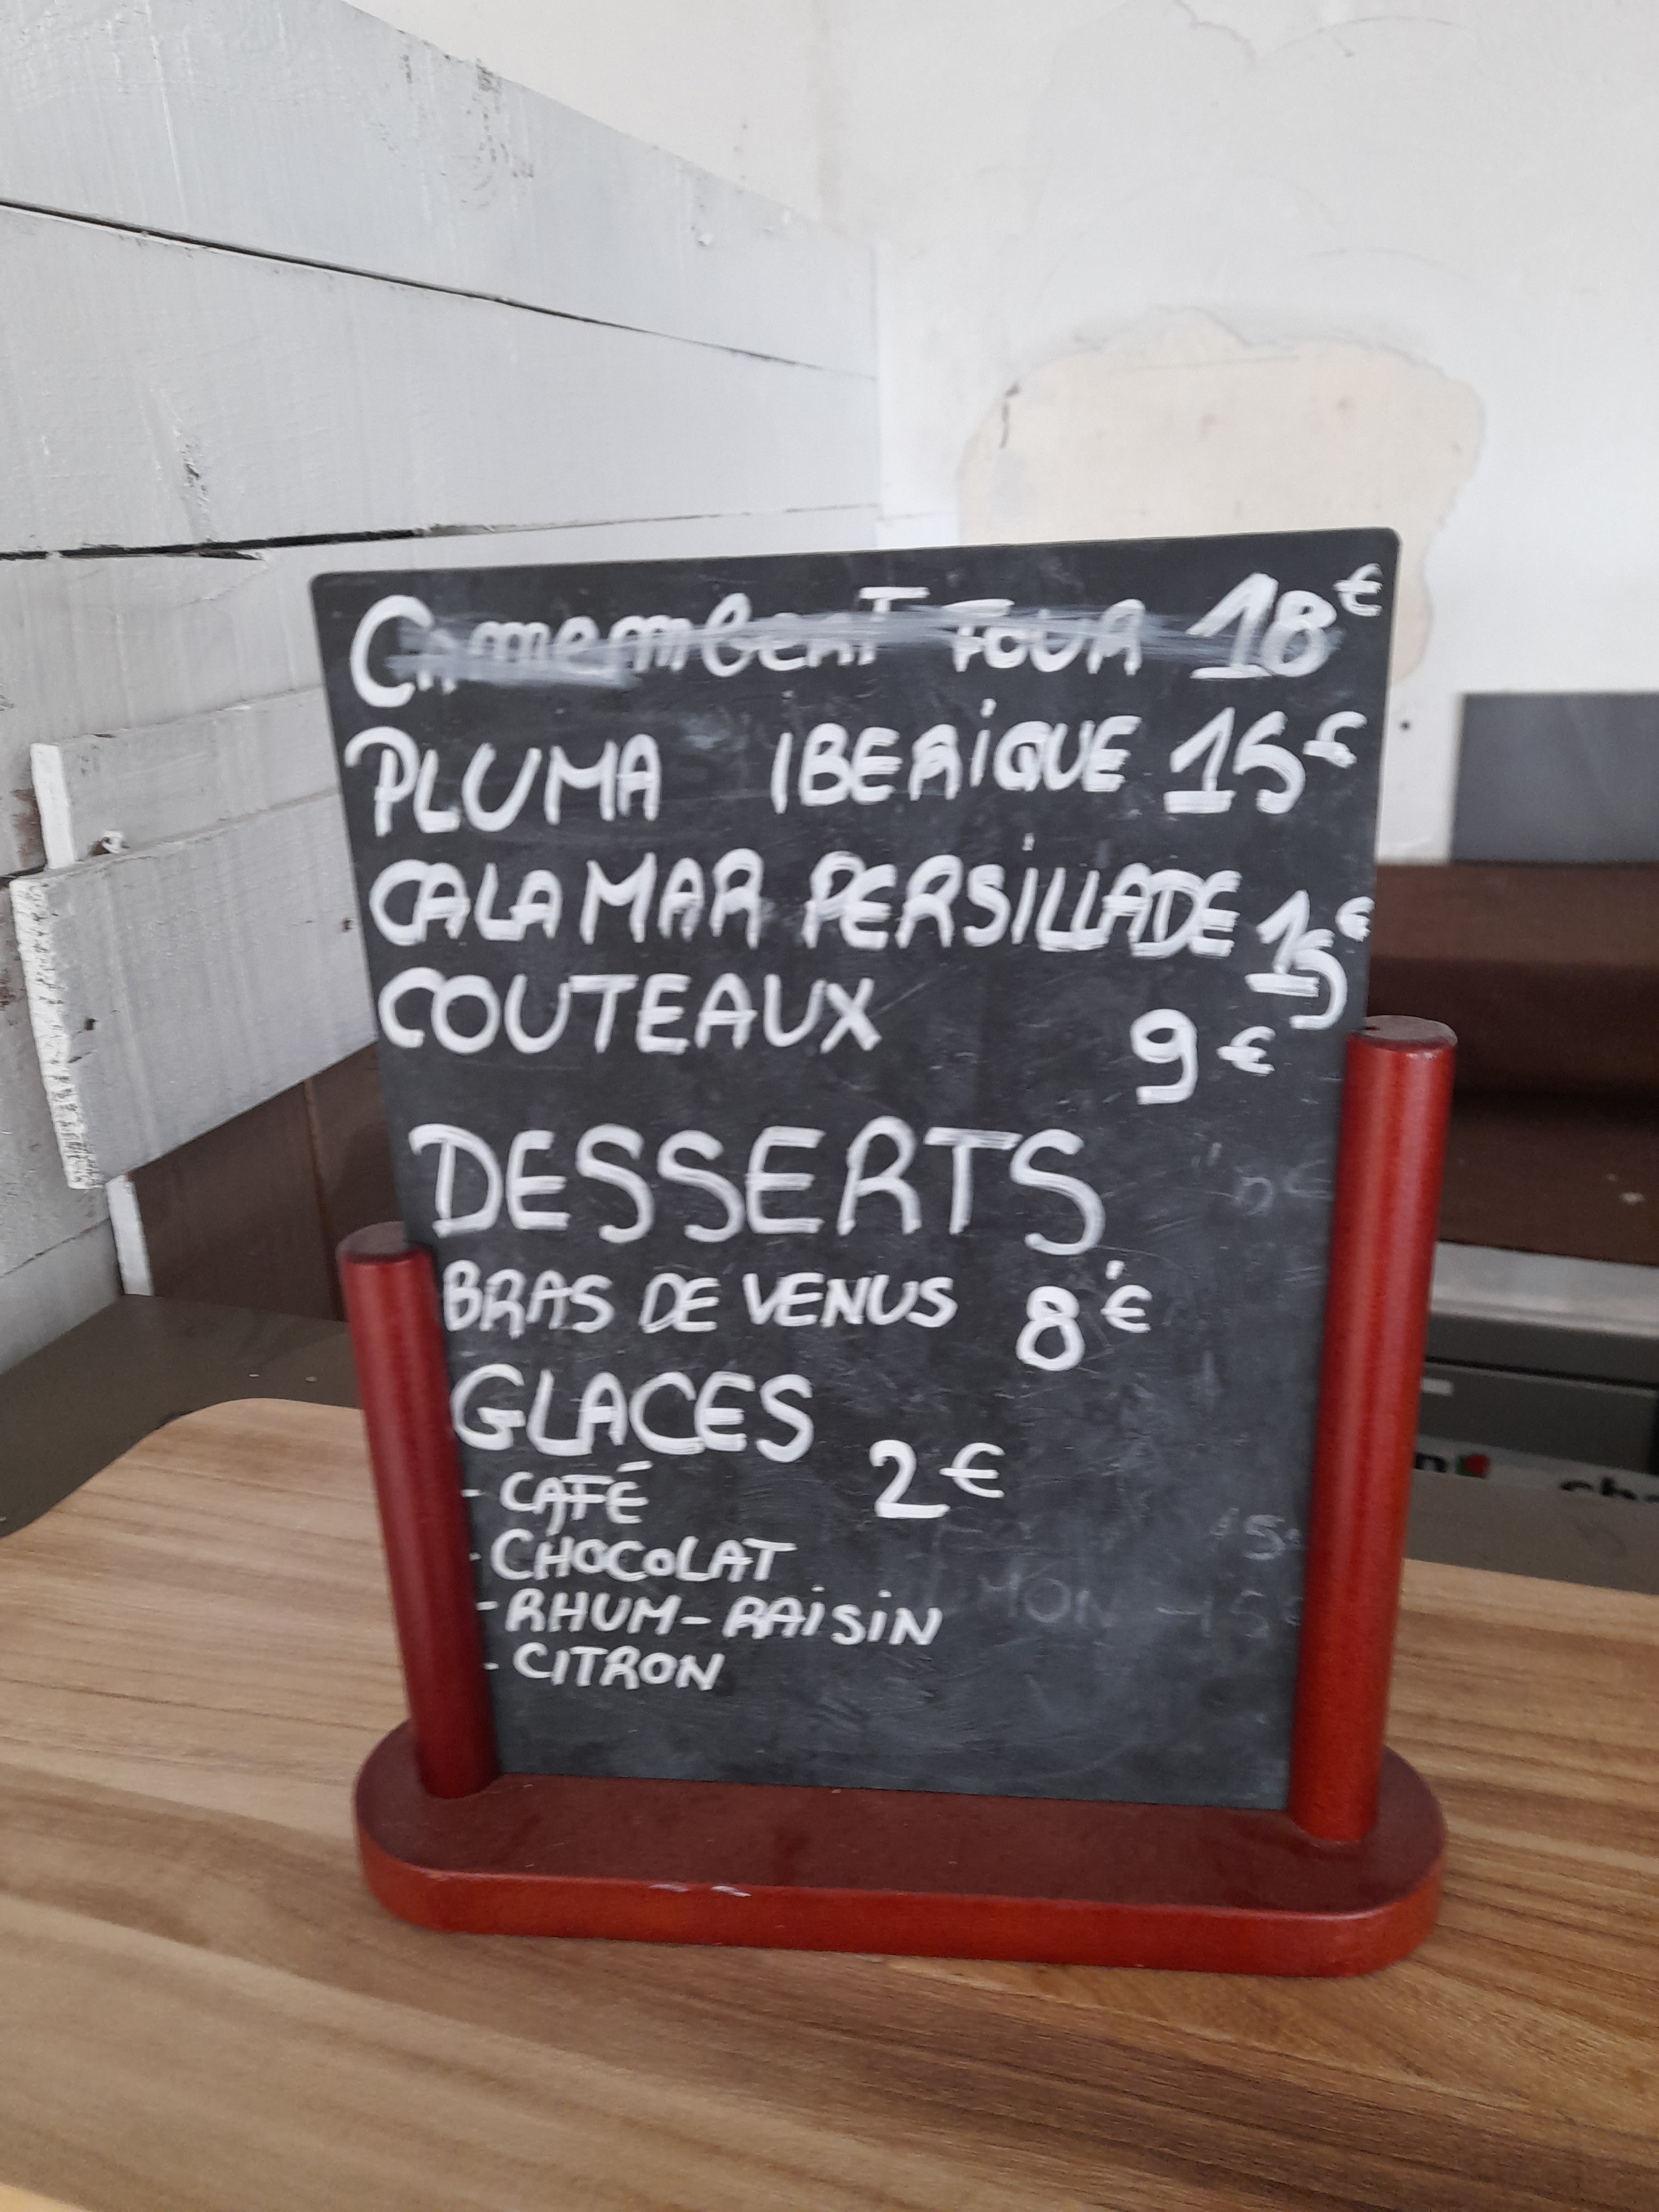 Camembert Four 18€
PLUMA IBERIQUE 15€
CALAMAR PERSILLADE 15€
COUTEAUX 9€
DESSERTS
BRAS DE VENUS 8€
GLACES 2€
- CAFÉ
- CHOCOLAT
- RHUM-RAISIN
- CITRON